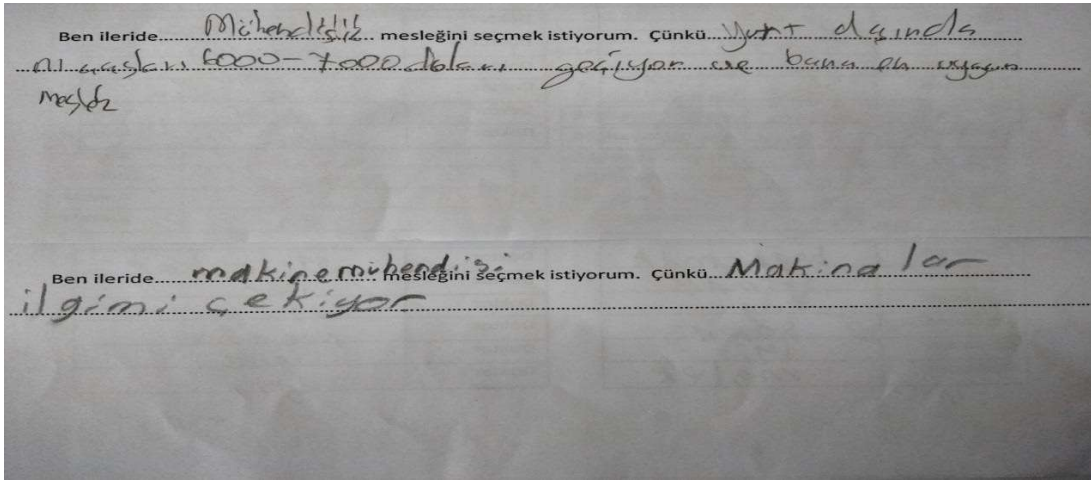 Ben ileride......Mühendislik.. mesleğini seçmek istiyorum. Çünkü..Yurt dışında
maaaşları 6000-7000 doları geçiyor ve bana en uygun
meslek
Ben ileride......makine mühendisi mesleğini seçmek istiyorum. Çünkü..Makinalar
ilgimi çekiyor